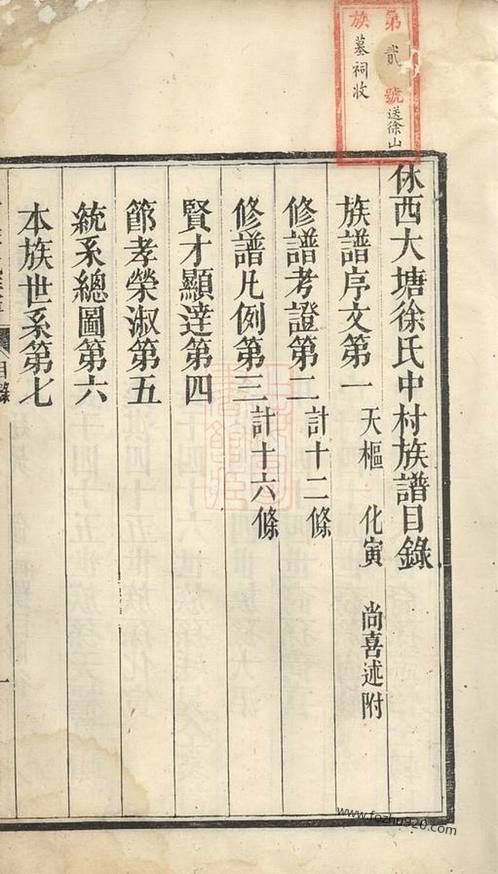 第貳號
族
送徐山
墓祠收
休西大塘徐氏中村族譜目錄
族譜序文第一 天樞 化寅 尚喜述附
修譜考證第二 計十二條
修譜凡例第三 計十六條
賢才顯達第四
節孝榮淑第五
統系總圖第六
本族世系第七
目錄
一
www.fozhu920.com